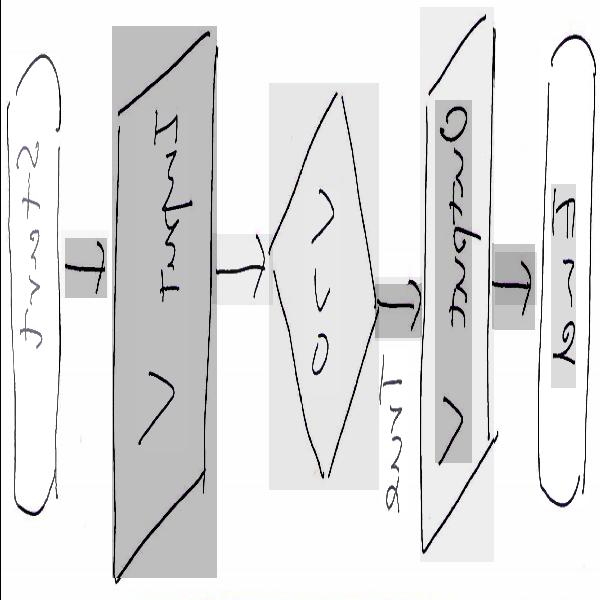 Start
Input V
V 0
True
Output V
End